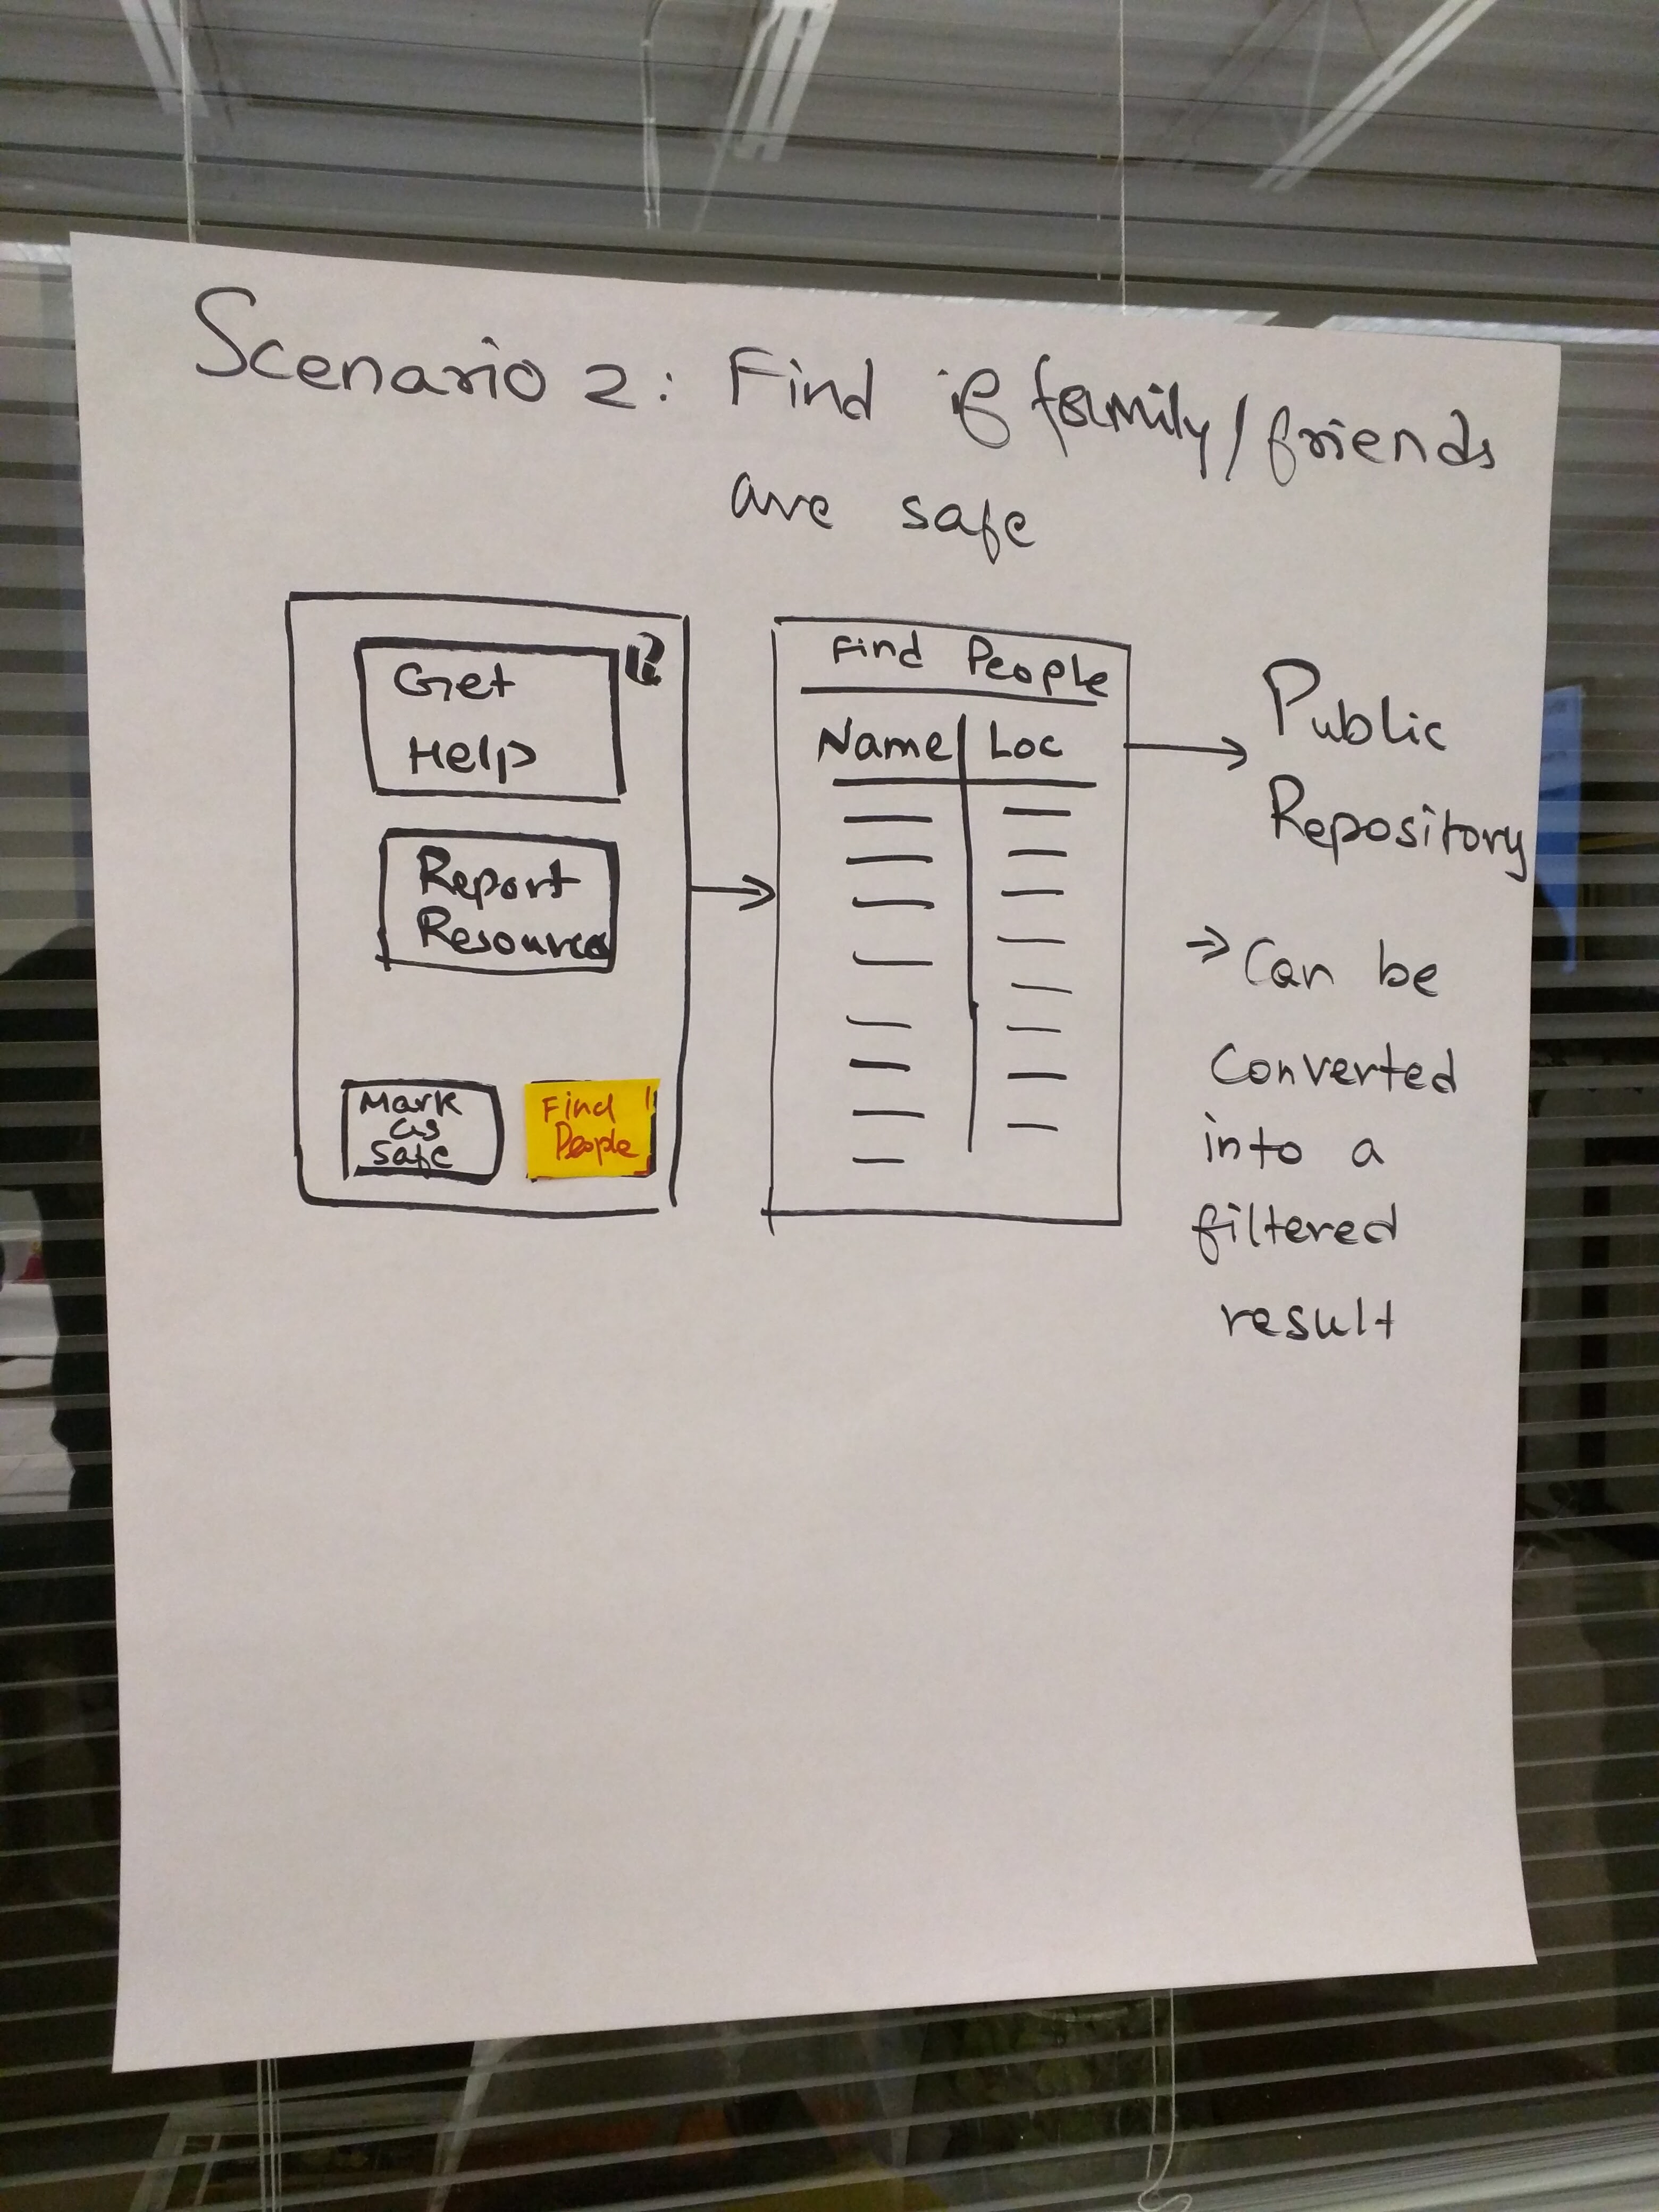 Scenario 2: Find if family/friends
are safe
Get
Help
Report
Resources
Mark
as
Safe
Find
People
Find People
Name Loc
Public
Repository
⇒ Can be
Converted
into a
filtered
result